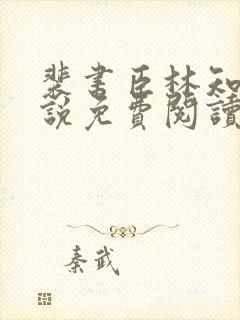 裴書臣林知
說免費閱讀
秦武